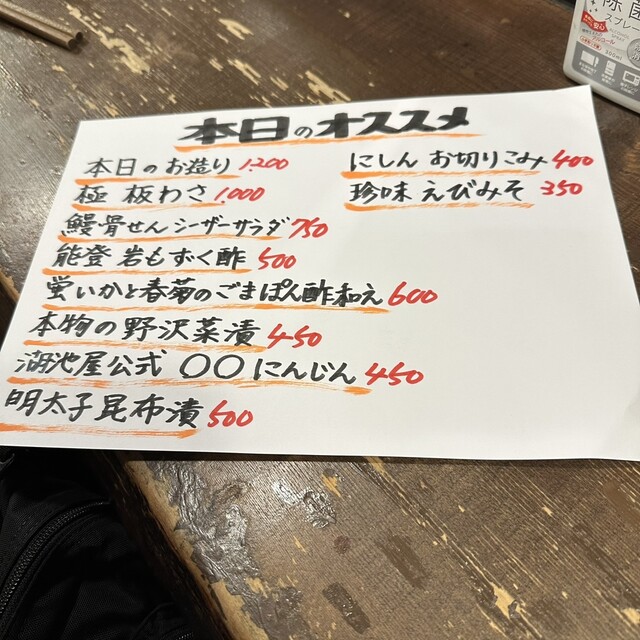 本日のオススメ
本日のお造り 1,200
極 板わさ 1,000
鰻骨せんシーザーサラダ 750
能登 岩もずく酢 500
蛍いかと春菊のごまぽん酢和え 600
本物の野沢菜漬 450
湖池屋公式 〇〇にんじん 450
明太子昆布漬 500
にしん お切りこみ 400
珍味 えびみそ 350
除菌
スプレー